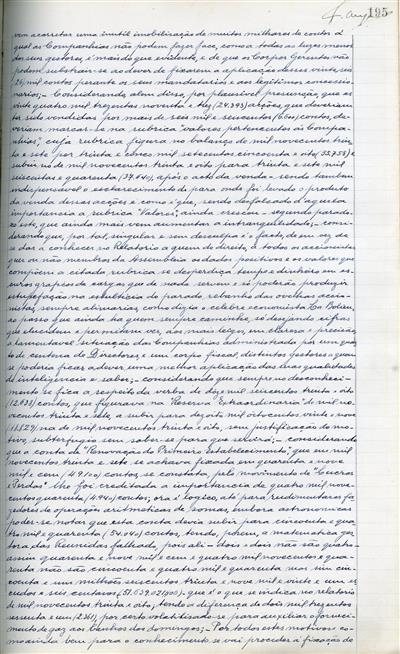 195
vem acarretar uma inutil imobilização de muitos milhares de contos á
qual as Companhias não podem fazer face, como a todas as luzes menos
dos seus gestores, é mais do que evidente, e de que os Corpos Gerentes não
podem substrair-se ao dever de ficarem a aplicação desses vinte e
mil contos perante os seus mandatarios e aos legitimos concessio-
narios; - Considerando, alem disso, por plausivel presunção, que as
vinte quatro mil trezentas noventa e tres (24.393) acções, que deveriam
ter sido vendidas por mais de seis mil e seiscentos contos, de-
veriam marcar-se na rubrica "valores pertencentes ás Compa-
nhias", cuja rubrica figura no balanço de mil novecentos trin-
ta e sete por trinta e cinco mil setecentos cincoenta e oito (35.758) e
subiu no de mil novecentos trinta e oito para trinta e sete mil
seiscentos e quarenta (37.640), após o acto da venda - sendo tambem
indispensavel o esclarecimento de para onde foi levado o produto
da venda dessas acções e como é que, sendo desfalcado daquela
importancia a rubrica "Valores", ainda cresceu - segundo parado-
xo este, que ainda mais vem aumentar a intranquilidade; - consi-
derando que, por tal, singular e sem desculpa é o facto, de em vez de
se dar a conhecer no Relatorio a quem de direito, a todos os accionistas
quer ou não membros da Assembleia os dados positivos e os valores que
compõem a citada rubrica se desperdiça tempo e dinheiro em os
euros graficos de cargas que de nada servem e só poderão produzir
estupefação na estulticia do parado rebanho das ovelhas accio-
nistas, sempre ordinarias, como dizia o celebre economista
ao passo que ainda ha quem sempre caminhe, só desejando cifras
que elucidem e permitam ver, aos mais leigos, com clareza e precisão,
a lamentavel situação das Companhias administradas por um quar-
to de centena de Directores, e um corpo fiscal, distintos gestores a quem
se poderia ficar a dever uma melhor aplicação das suas qualidades
de inteligencia e saber; - considerando que sempre no desconheci-
mento se fica a respeito da verba de dez mil seiscentos trinta e oito
contos, que figurava na "Reserva Extraordinaria" de mil no-
vecentos trinta e sete, a subir para dezoito mil oitocentos vinte e nove
(18.829) na de mil novecentos trinta e oito, sem justificação do mo-
tivo, subterfugio sem saber-se para que servirá; - considerando
que a conta de "Renovação do Primeiro Estabelecimento", que em mil
novecentos trinta e sete se achava ficada em quarenta e nove
mil e cem (49.100) contos, se constata, pelo movimento de "Lucros
e Perdas" lhe foi creditada a importancia de quatro mil nove-
centos quarenta (4.940) contos; ora é logico, até para rudimentares fa-
zedores de operação aritmeticas de somar, embora astronomicas
poder-se notar que esta conta devia subir para cincoenta e qua-
tro mil e quarenta (54.040) contos, tendo, porem, a matematica por-
tora das Reunidas falhado, pois ali - dois e dois não são quatro -
assim quarenta e nove mil e cem e quatro mil novecentos e qua-
renta não são cincoenta e quatro mil e quarenta mas sim cin-
coenta e um milhões seiscentos trinta e nove mil e vinte e um es-
cudos e seis centavos, que é o que se indica no relatorio
de mil novecentos trinta e oito, tendo a diferença de dois mil trezentos
sessenta e um (2.361), por certo volatilisado-se para auxiliar o forneci-
mento de gaz aos banhos dos domingos; - Por todos estes motivos e co-
mo ainda bem para o conhecimento se vai proceder á fixação do